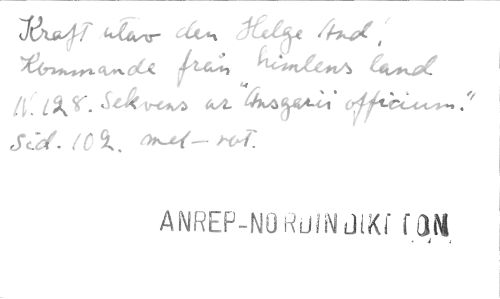 Kraft utav den Helge And,
Kommande från himlens land
N. 128. Sekvens ur "Ansgarii officium."
Sid. 102. mel-not.
ANREP-NORDIN